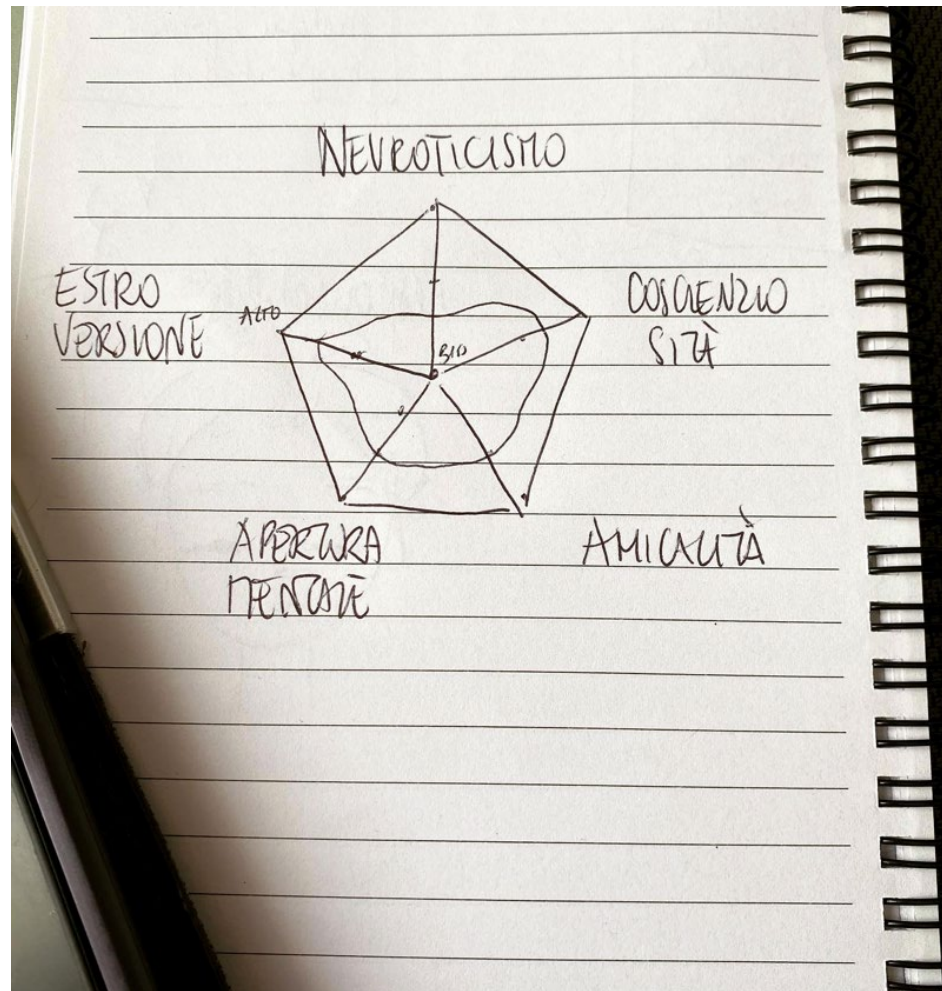 NEUROTICISMO
ESTRO
VERSIONE
ALTO
COSCIENZIO
SITÀ
APERTURA
MENTALE
AMICALITÀ